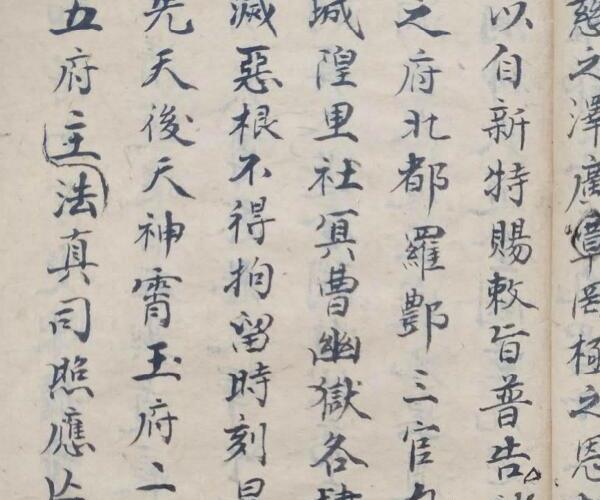 慈之澤廣覃罔極之恩
以自新特賜敕旨普告
之府北都羅酆三官
城隍里社冥曹幽獄各
滅惡根不得拘留時刻
先天後天神霄玉府二
五府主法真司照應